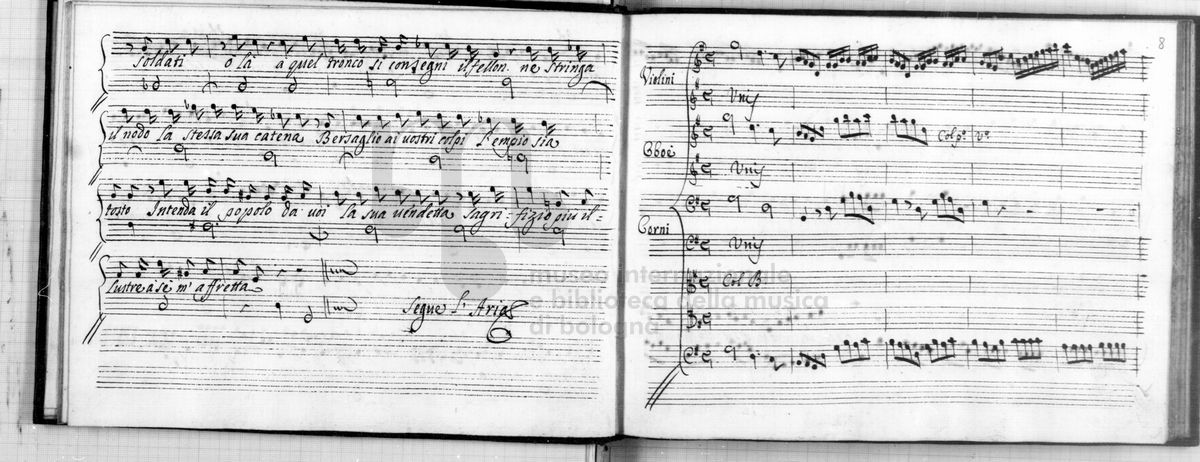 soldati o là a quel tronco si consegni il fellon ne stringa
il nodo la stessa sua catena Bersaglio ai vostri colpi l'empio sia
tosto Intenda il popolo da voi la sua vendetta sagri-fizio più il-
lustre a sè m'affretta
Segue l'Aria
8
Violini
Unis
Col pº Vº
Oboè
Unis
Corni
Unis
Col B
museo internazionale
e biblioteca della musica
di bologna